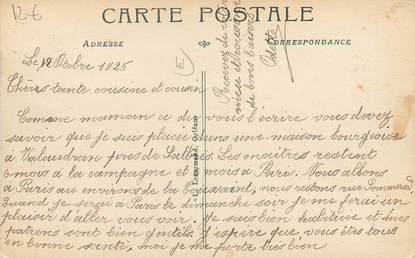 12 €
CARTE POSTALE
ADRESSE
CORRESPONDANCE
E
Le 12 Octobre 1925
Chères tante cousine et cousin
Comme maman a dû vous l'écrire vous devez
savoir que je suis placée dans une maison bourgeoise
à près de Salbris. Les maitres restent
6 mois à la campagne et 6 mois à Paris. Nous allons
à Paris au environs de la Toussaint, nous restons rue Sommerard
Quand je serai à Paris le dimanche soir je me ferai un
plaisir d'aller vous voir. Je suis bien habituée et mes
patrons sont bien gentils. J'espère que vous êtes tous
en bonne santé, moi je me porte très bien
Recevez de votre
nièce et cousine
de bons baisers
Odette